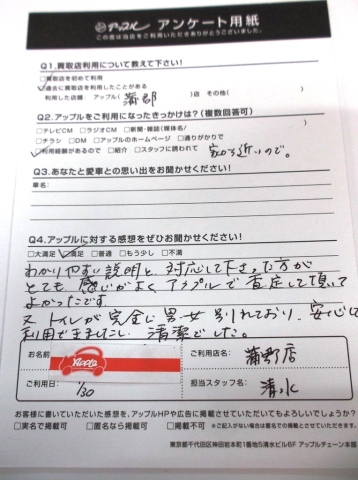 アップル アンケート用紙
この度は当店をご利用いただきありがとうございました。
Q1.買取店利用について教えて下さい!
□買取店を初めて利用
☑過去に買取店を利用したことがある
利用した店舗 アップル( 蒲郡 )店 その他( )
Q2.アップルをご利用になったきっかけは?(複数回答可)
□テレビCM □ラジオCM □新聞・雑誌(媒体名/ )
□チラシ □DM □アップルのホームページ □通りがかりで
☑利用経験があるので □紹介 □スタッフに誘われて 家から近いので。
Q3.あなたと愛車との思い出をお聞かせください!
車名:
Q4.アップルに対する感想をぜひお聞かせください!
□大満足 ☑満足 □普通 □もう少し □不満
わかりやすい説明と、対応して下さった方が
とても感じがよくアップルで査定して頂いて
よかったです。
又トイレが完全に男女別れており、安心して
利用できましたし、清潔でした。
お名前 Apple
ご利用店名: 蒲郡店
ご利用日: 1/30
担当スタッフ名: 清水
お客様に書いていただいた感想を、アップルHPや広告に掲載させていただいてもよろしいでしょうか?
□実名で掲載可 □匿名なら掲載可 □掲載不可 ※ご記入がない場合は匿名での掲載とさせていただきます。
東京都千代田区神田岩本町1番地5清水ビル6F アップルチェーン本部